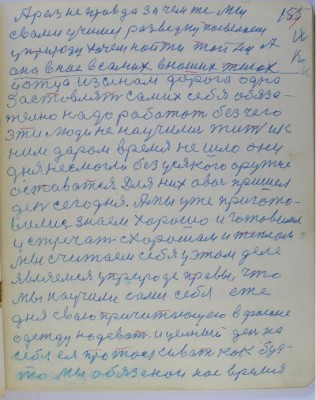 А раз не правда зачем же мы
своими учимся разведку посылаем
у природу хочем найти той ли А
она в нас в самих внешних телах
у отца и сынам дорога одна
заставлят самих себя обяза-
телно надо работат без чего
эти люди не научились жит и к
ним даром время не шло они
дня не смогли без усякого оружие
оставатся Для них авой пришол
ден сегодня. А мы уже пригото-
вились знаем хорошо и готовимся
устречат с хорошим и теплом
Мы считаем себя у этом деле
являемся у природе правы, что
мы научили сами себя еже
дня своего причитающего в фасоне
одежду надеват. и целый ден на
себя ея протоскиват как буд-
то мы обязаной нас время
155